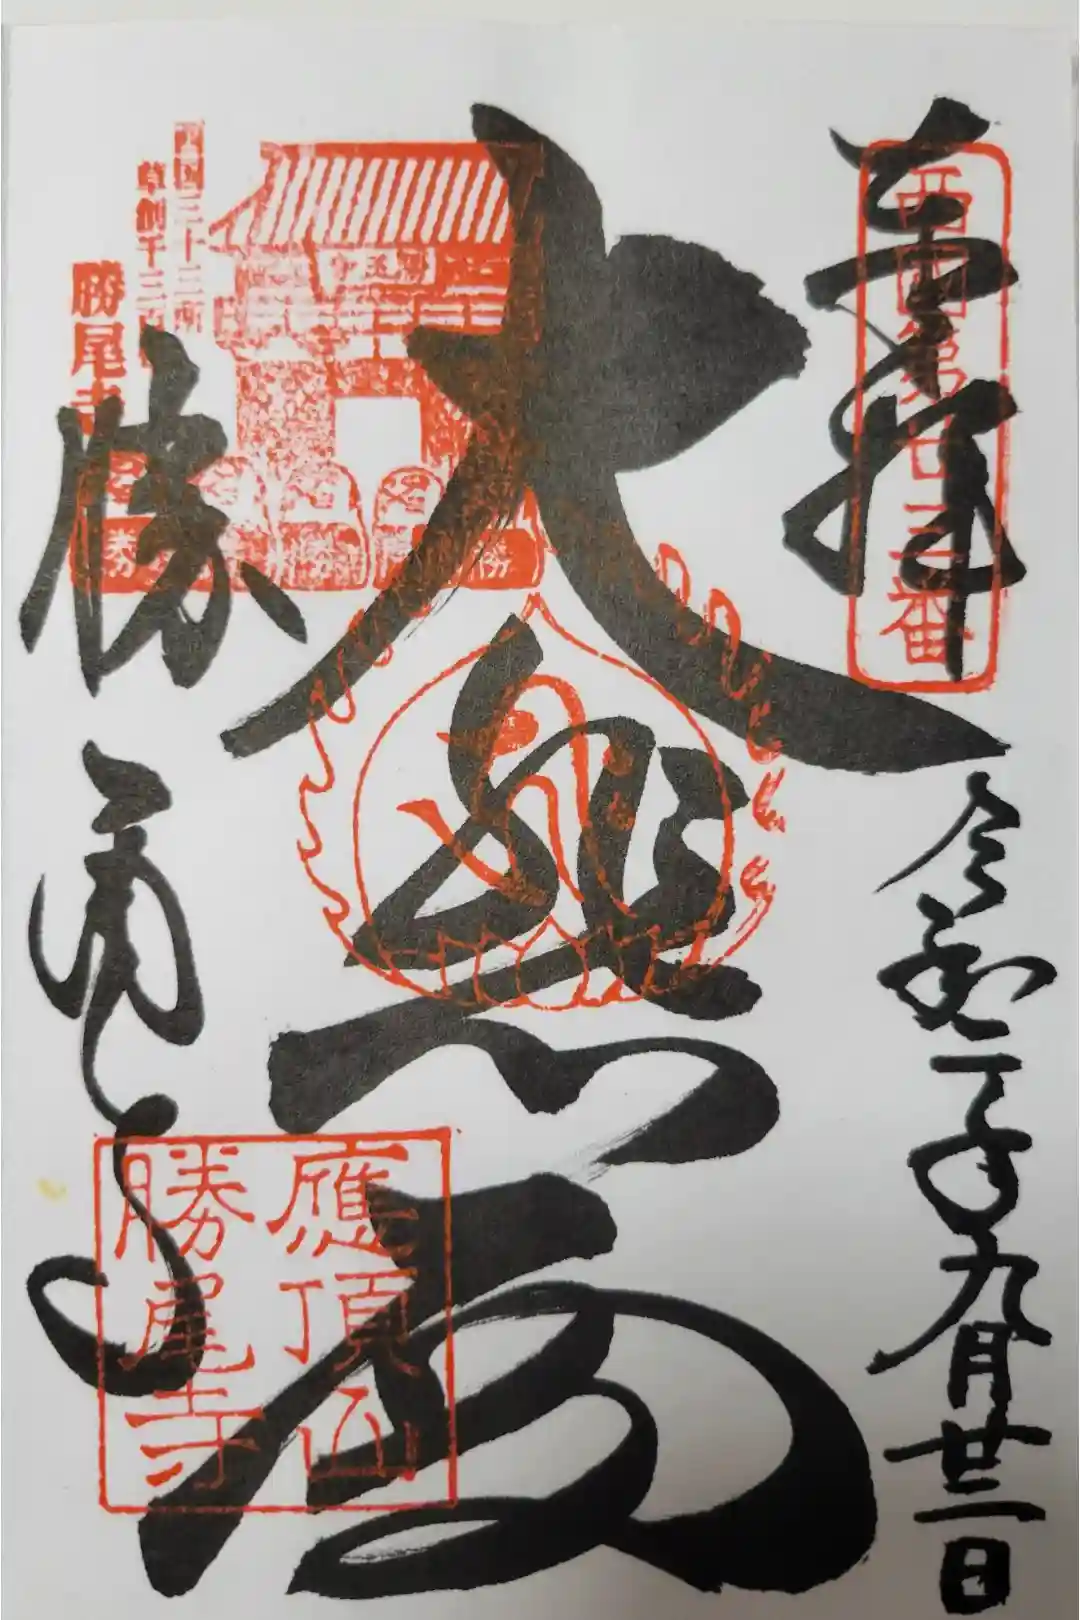 奉拝
西国第廿三番
令和二年九月廿二日
大悲殿
西国三十三所
草創千三百年
勝尾寺
勝尾寺
應頂山
勝尾寺
勝
勝
勝